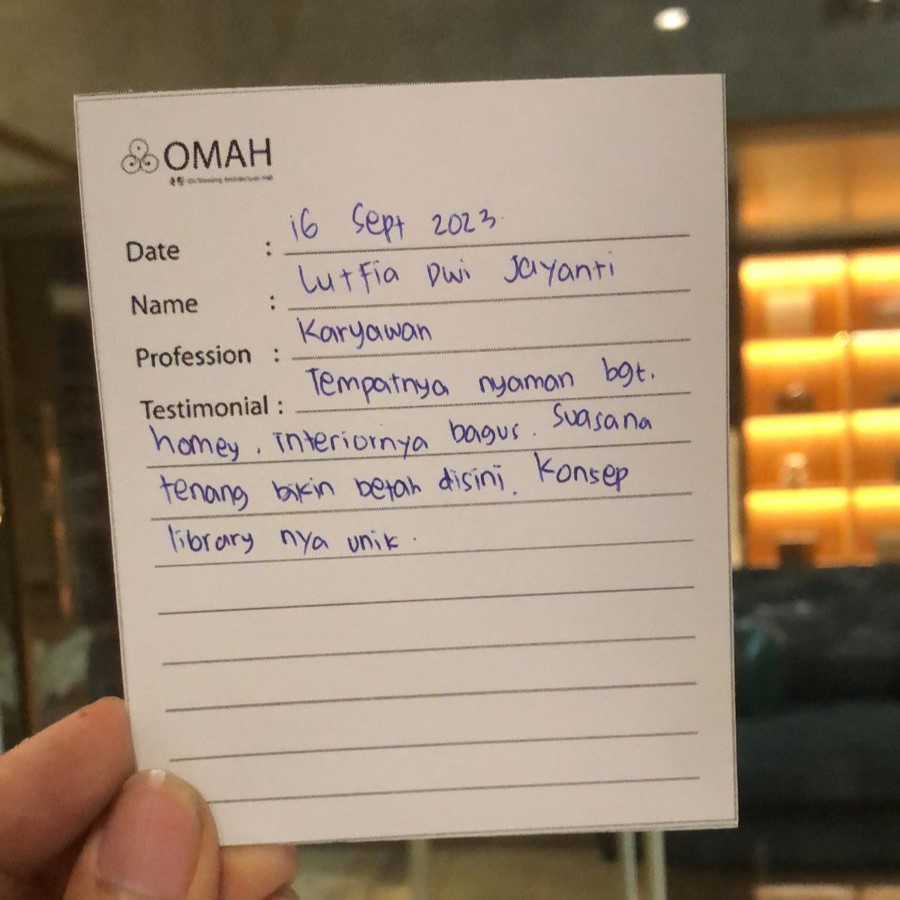 OMAH
Date : 16 Sept 2023
Name : Lutfia Dwi Jayanti
Profession : Karyawan
Testimonial : Tempatnya nyaman bgt.
homey. interiornya bagus. Suasana
tenang bikin betah disini. Konsep
library nya unik.